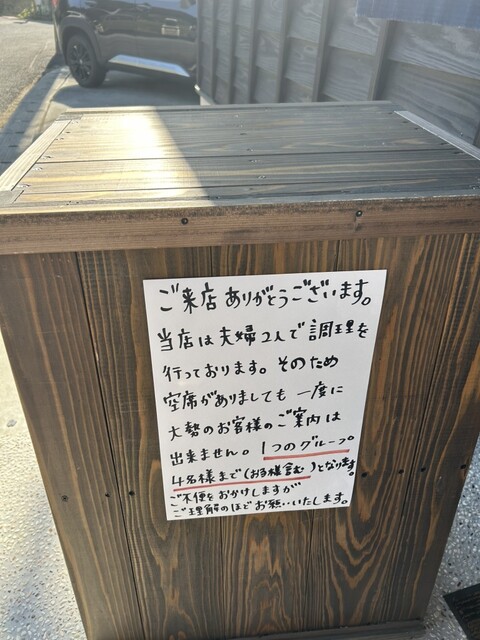 ご来店ありがとうございます。
当店は夫婦2人で調理を
行っております。そのため
空席がありましても一度に
大勢のお客様のご案内は
出来ません。1つのグループ
4名様まで(お子様含む)となります。
ご不便をおかけしますが
ご理解のほどお願いいたします。